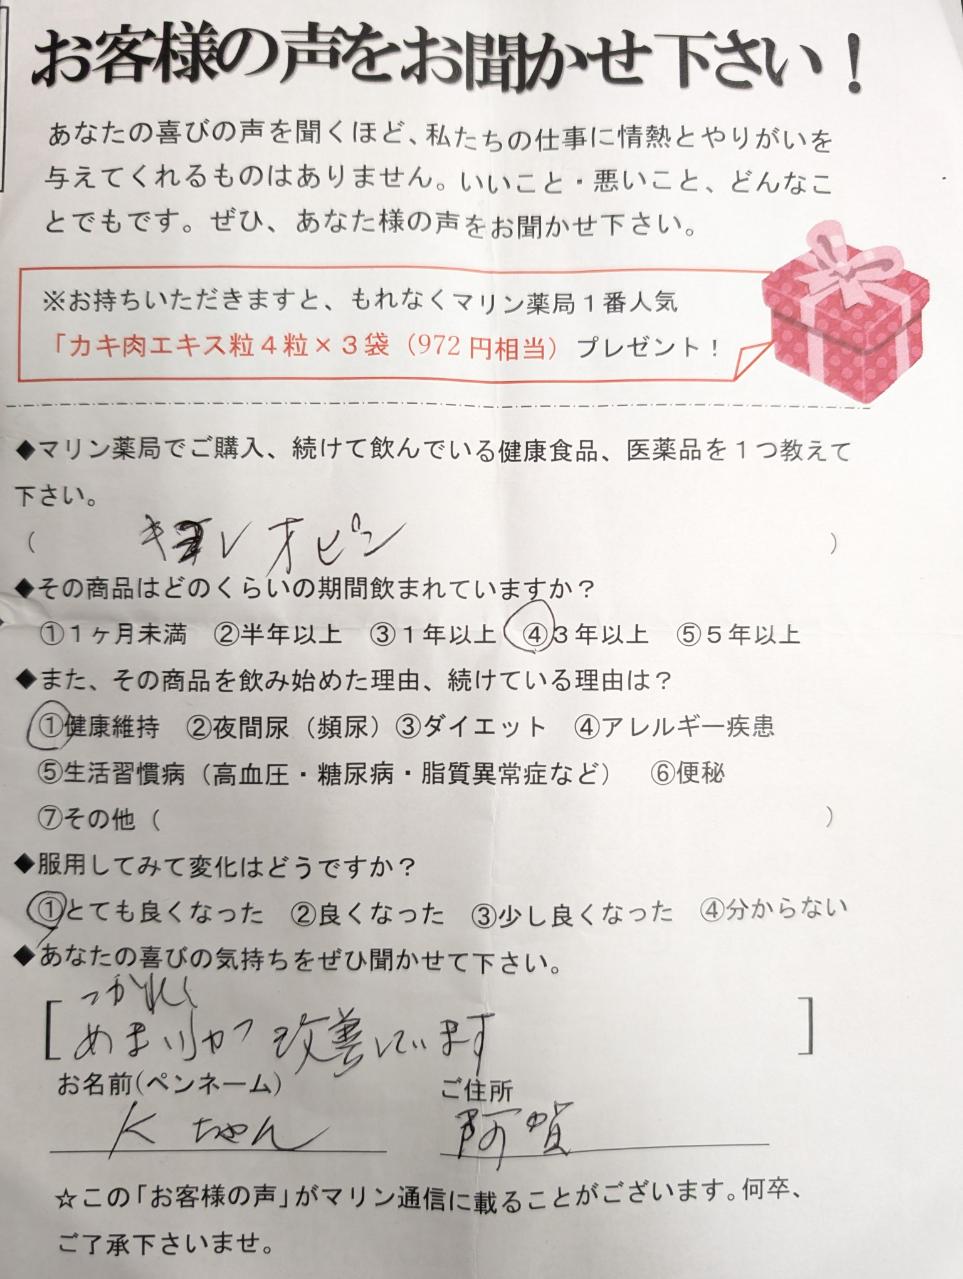 お客様の声をお聞かせ下さい！
あなたの喜びの声を聞くほど、私たちの仕事に情熱とやりがいを
与えてくれるものはありません。いいこと・悪いこと、どんなこ
とでもです。ぜひ、あなた様の声をお聞かせ下さい。
※お持ちいただきますと、もれなくマリン薬局１番人気
「カキ肉エキス粒４粒×３袋（972円相当） プレゼント！
◆マリン薬局でご購入、続けて飲んでいる健康食品、医薬品を１つ教えて
下さい。
（ レオピン ）
◆その商品はどのくらいの期間飲まれていますか？
①１ヶ月未満 ②半年以上 ③１年以上 ④３年以上 ⑤５年以上
◆また、その商品を飲み始めた理由、続けている理由は？
①健康維持 ②夜間尿（頻尿）③ダイエット ④アレルギー疾患
⑤生活習慣病（高血圧・糖尿病・脂質異常症など） ⑥便秘
⑦その他（ ）
◆服用してみて変化はどうですか？
①とても良くなった ②良くなった ③少し良くなった ④分からない
◆あなたの喜びの気持ちをぜひ聞かせて下さい。
つかれ
[ めまい 改善しています ]
お名前（ペンネーム） ご住所
Kちゃん 阿賀
☆この「お客様の声」がマリン通信に載ることがございます。何卒、
ご了承下さいませ。